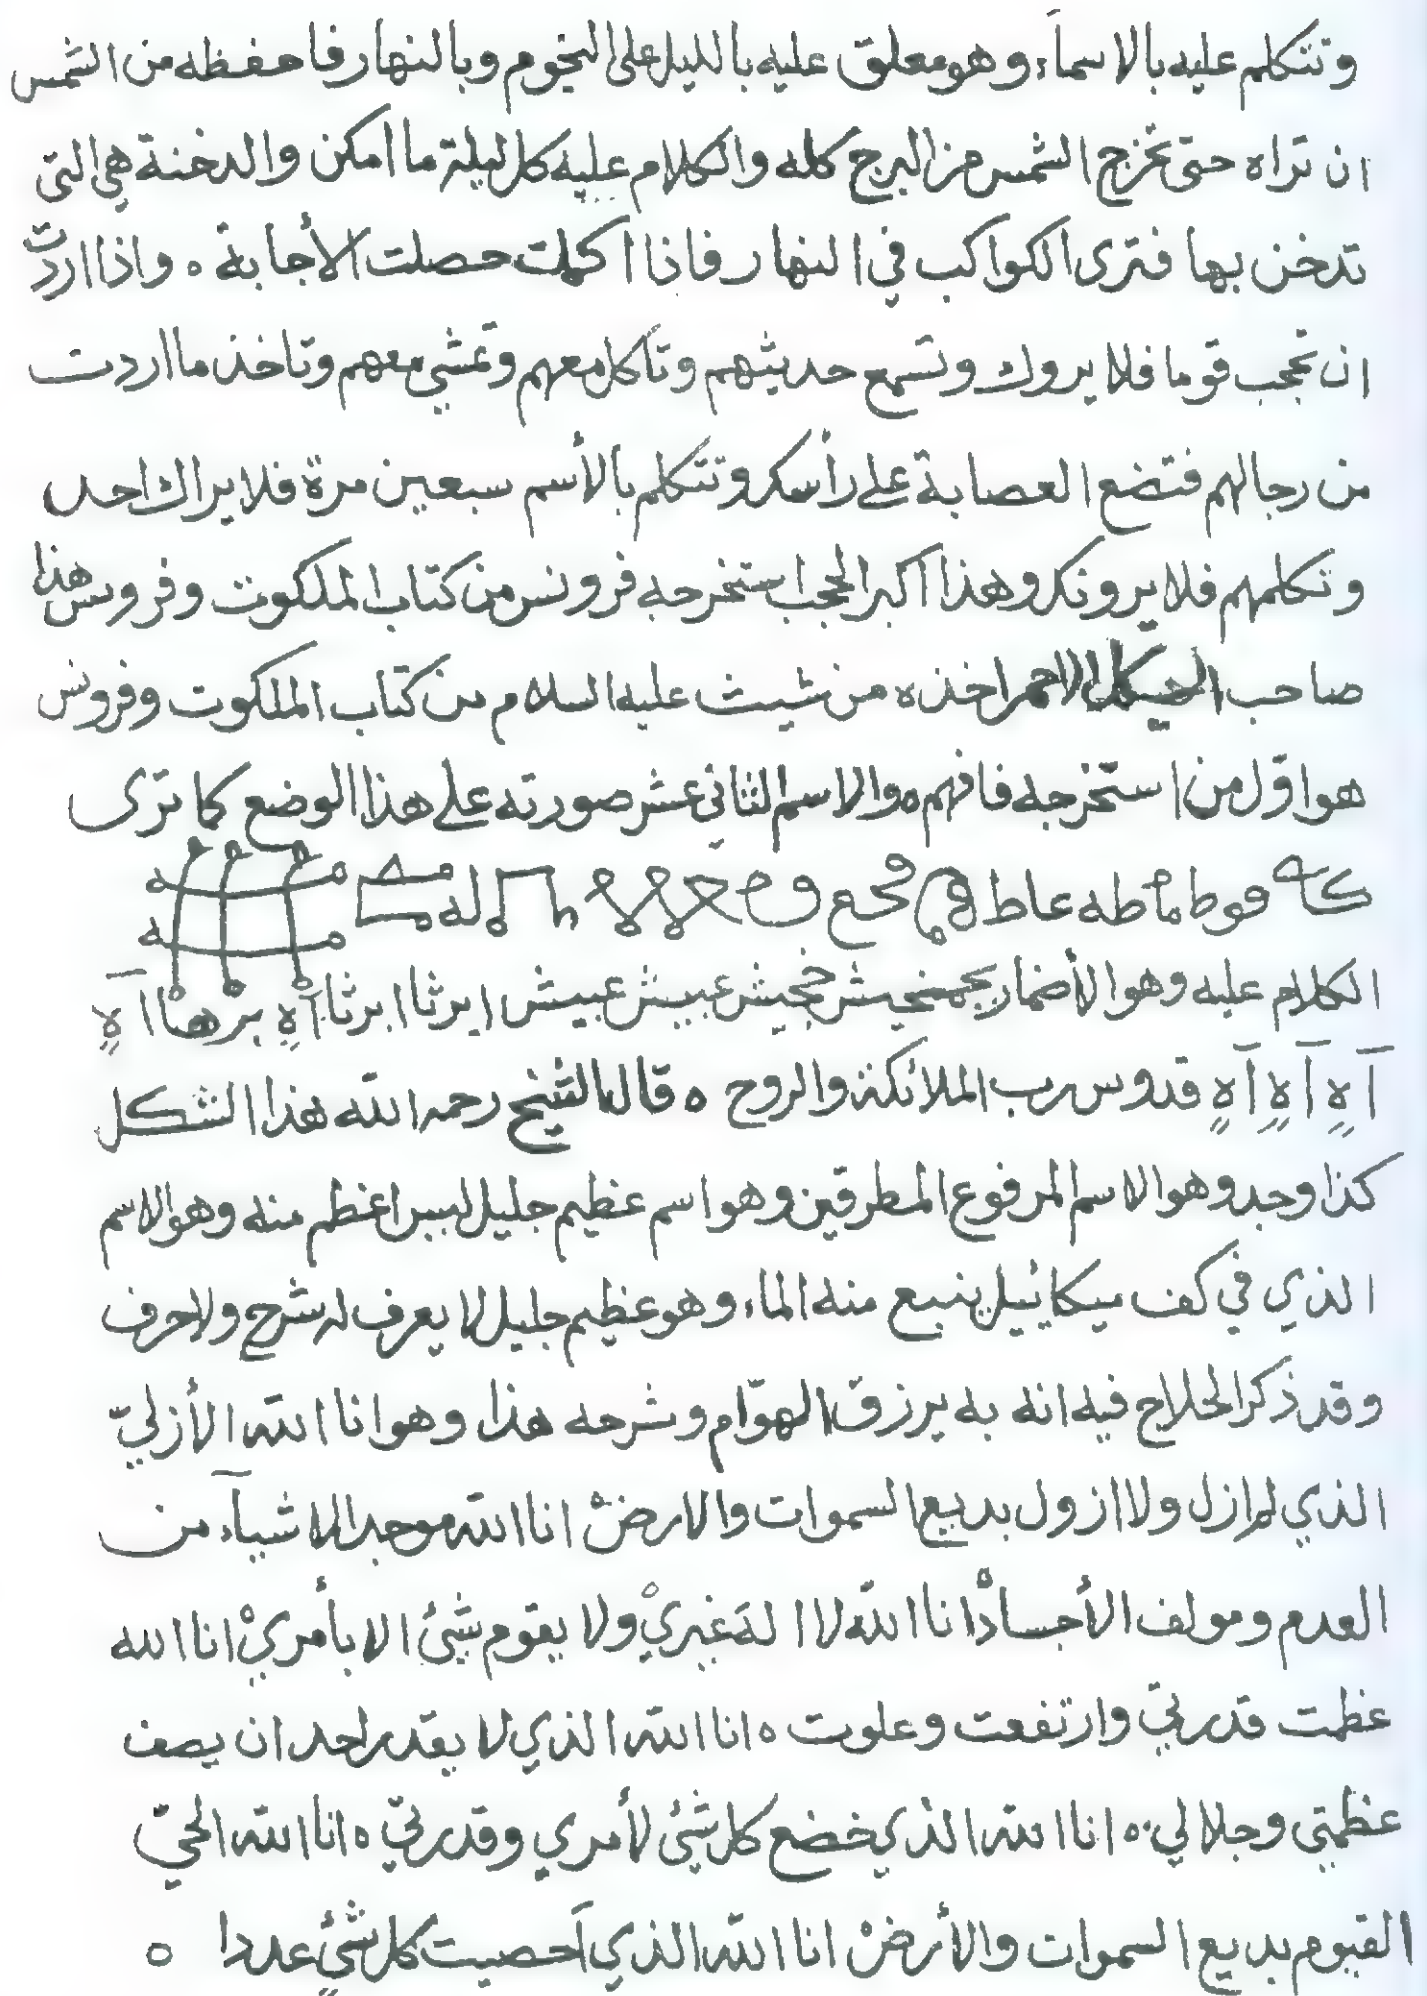 وتتكلم عليه بالاسمآء وهو معلق عليه بالليل على النجوم وبالنهار فاحفظه من الشمس
ان تراه حتى تخرج الشمس من البرج كله والكلام عليه كل ليلة ما امكن والدخنة هى التى
تدخن بها فترى الكواكب في النهار فاذا اكملت حصلت الأجابة ه واذا اردت
ان تحجب قوما فلا يروك وتسمع حديثهم وتأكل معهم وتمشي معهم وتاخذ ما اردت
من رجالهم فتضع العصابة على رأسك وتتكلم بالأسم سبعين مرة فلا يراك احد
وتكلمهم فلا يرونك وهذا اكبر الحجب استخرجه فرونس من كتاب الملكوت وفرونس هذا
صاحب الهيكل الاحمر اخذه من شيث عليه السلام من كتاب الملكوت وفرونس
هو اوّل من استخرجه فافهم ه والاسم الثاني عشر صورته على هذا الوضع كما ترى
طه عاط له
الكلام عليه وهو الأضمار عبيش عبيش ابرثا ابرثا آهٍ برهتا آهٍ
آهٍ آهٍ آهٍ قدوس رب الملائكة والروح ه قال الشيخ رحمه الله هذا الشكل
كذا وجد وهو الاسم المرفوع المطرقين وهو اسم عظيم جليل ليس اعظم منه وهو الاسم
الذي في كف ميكائيل ينبع منه الماء وهو عظيم جليل لا يعرف له شرح ولا حرف
وقد ذكر الحلاج فيه انه به يرزق الهوّام وشرحه هذا وهو انا الله الأزليّ
الذي لم ازل ولا ازول بديع السموات والارضْ انا الله موجد الاشيآء من
العدم ومولف الأجسادْ انا الله لا اله غيريْ ولا يقوم شئ الا بأمريْ انا الله
عظمت قدرتي وارتفعت وعلوت ه انا الله الذي لا يقدر احد ان يصف
عظمتي وجلالي ه انا الله الذي يخضع كل شئ لأمري وقدرتي ه انا الله الحيّ
القيوم بديع السموات والأرضْ انا الله الذي أحصيت كل شئٍ عددا ه